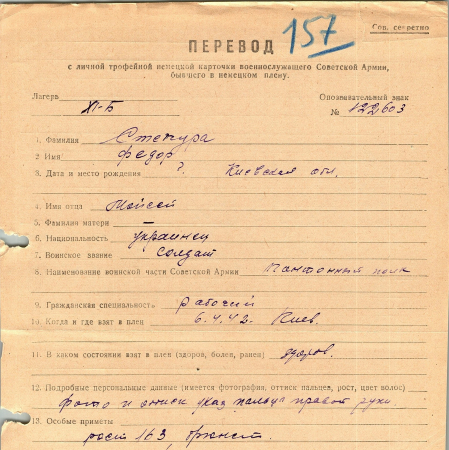 Сов. секретно
157
ПЕРЕВОД
с личной трофейной немецкой карточки военнослужащего Советской Армии,
бывшего в немецком плену.
Лагерь XI-Б
Опознавательный знак
№ 122603
1. Фамилия Стежура
2 Имя Федор
3. Дата и место рождения ? Киевская обл.
4. Имя отца Мойсей
5. Фамилия матери —
6. Национальность украинец
7. Воинское звание солдат
8. Наименование воинской части Советской Армии полк
9. Гражданская специальность рабочий
10. Когда и где взят в плен 6.4.42. Киев.
11. В каком состоянии взят в плен (здоров, болен, ранен) здоров.
12. Подробные персональные данные (имеется фотография, оттиск пальцев, рост, цвет волос)
фото и оттиск указ пальца правой руки
13. Особые приметы
рост 163,